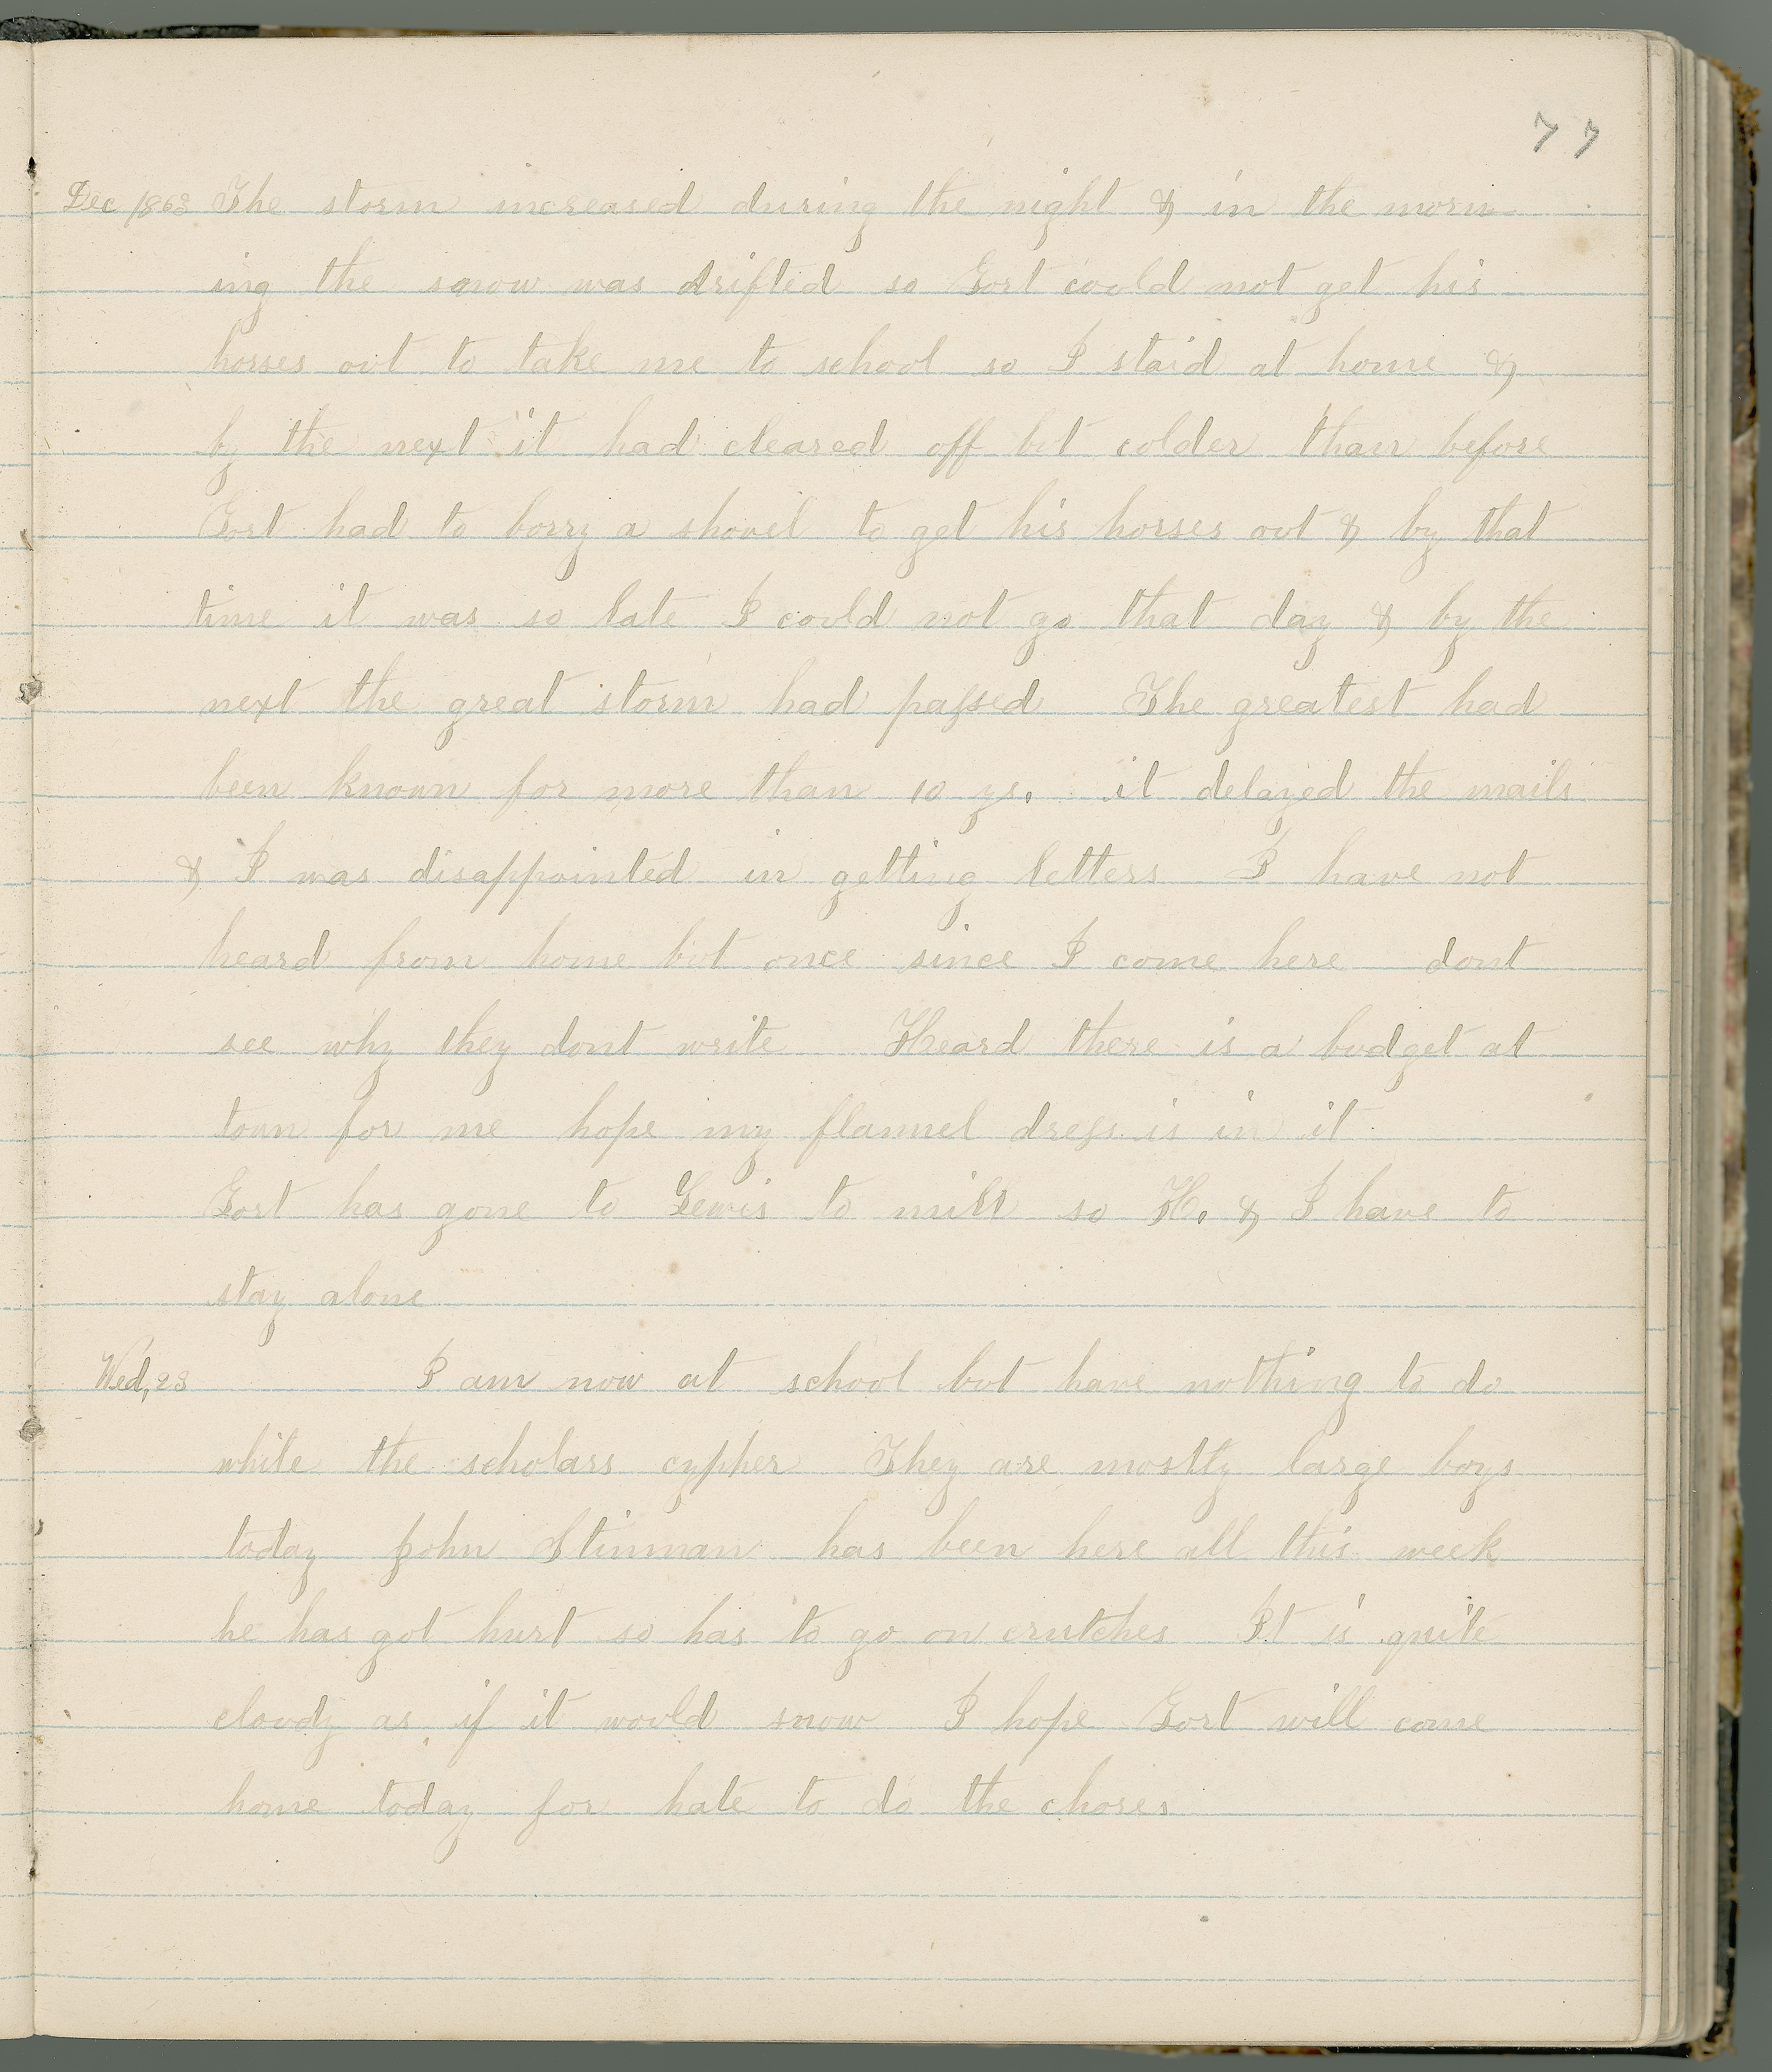 77
Dec 1863 The storm increased during the night & in the morn-
ing the snow was drifted so Gort could not get his
horses out to take me to school so I staid at home &
by the next it had cleared off but colder than before
Gort had to borry a shovel to get his horses out & by that
time it was so late I could not go that day & by the
next the great storm had passed The greatest had
been known for more than 10 ys. it delayed the mails
& I was disappointed in getting letters I have not
heard from home but once since I come here dont
see why they dont write Heard there is a budget at
town for me hope my flannel dress is in it
Gort has gone to Lewis to mill so H. & I have to
stay alone
Wed, 23 I am now at school but have nothing to do
while the scholars cypher They are mostly large boys
today John Stinman has been here all this week
he has got hurt so has to go on crutches It is quite
cloudy as if it would snow I hope Gort will come
home today for hate to do the chores